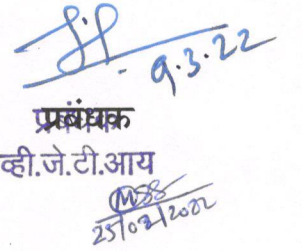 9.3.22
प्रबंधक
व्ही.जे.टी.आय
25/02/2022